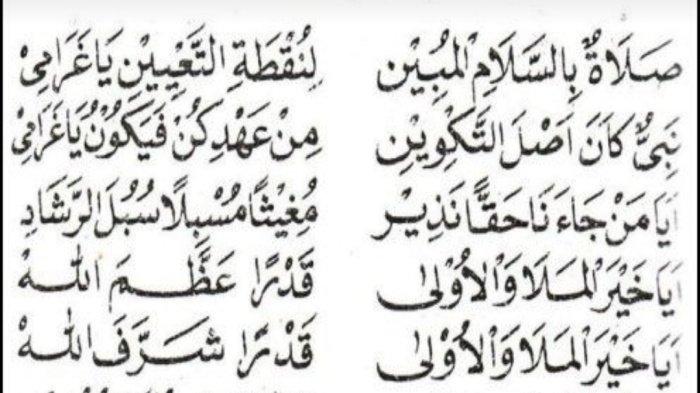 صَلَاةٌ بِالسَّلَامِ الْمُبِيْنِ لِنُقْطَةِ التَّعْيِيْنِ يَاغَرَامِيْ
نَبِيٌّ كَانَ اَصْلَ التَّكْوِيْنِ مِنْ عَهْدِ كُنْ فَيَكُوْنُ يَاغَرَامِيْ
اَيَا مَنْ جَاءَنَا حَقًّا نَذِيْرِ مُغِيْثًا مُسْبِلًا سُبُلَ الرَّشَادِ
اَيَا خَيْرَ الْمَلَا وَالْاُوْلٰى قَدْرًا عَظَّمَ اللّٰهْ
اَيَا خَيْرَ الْمَلَا وَالْاُوْلٰى قَدْرًا شَرَّفَ اللّٰهْ